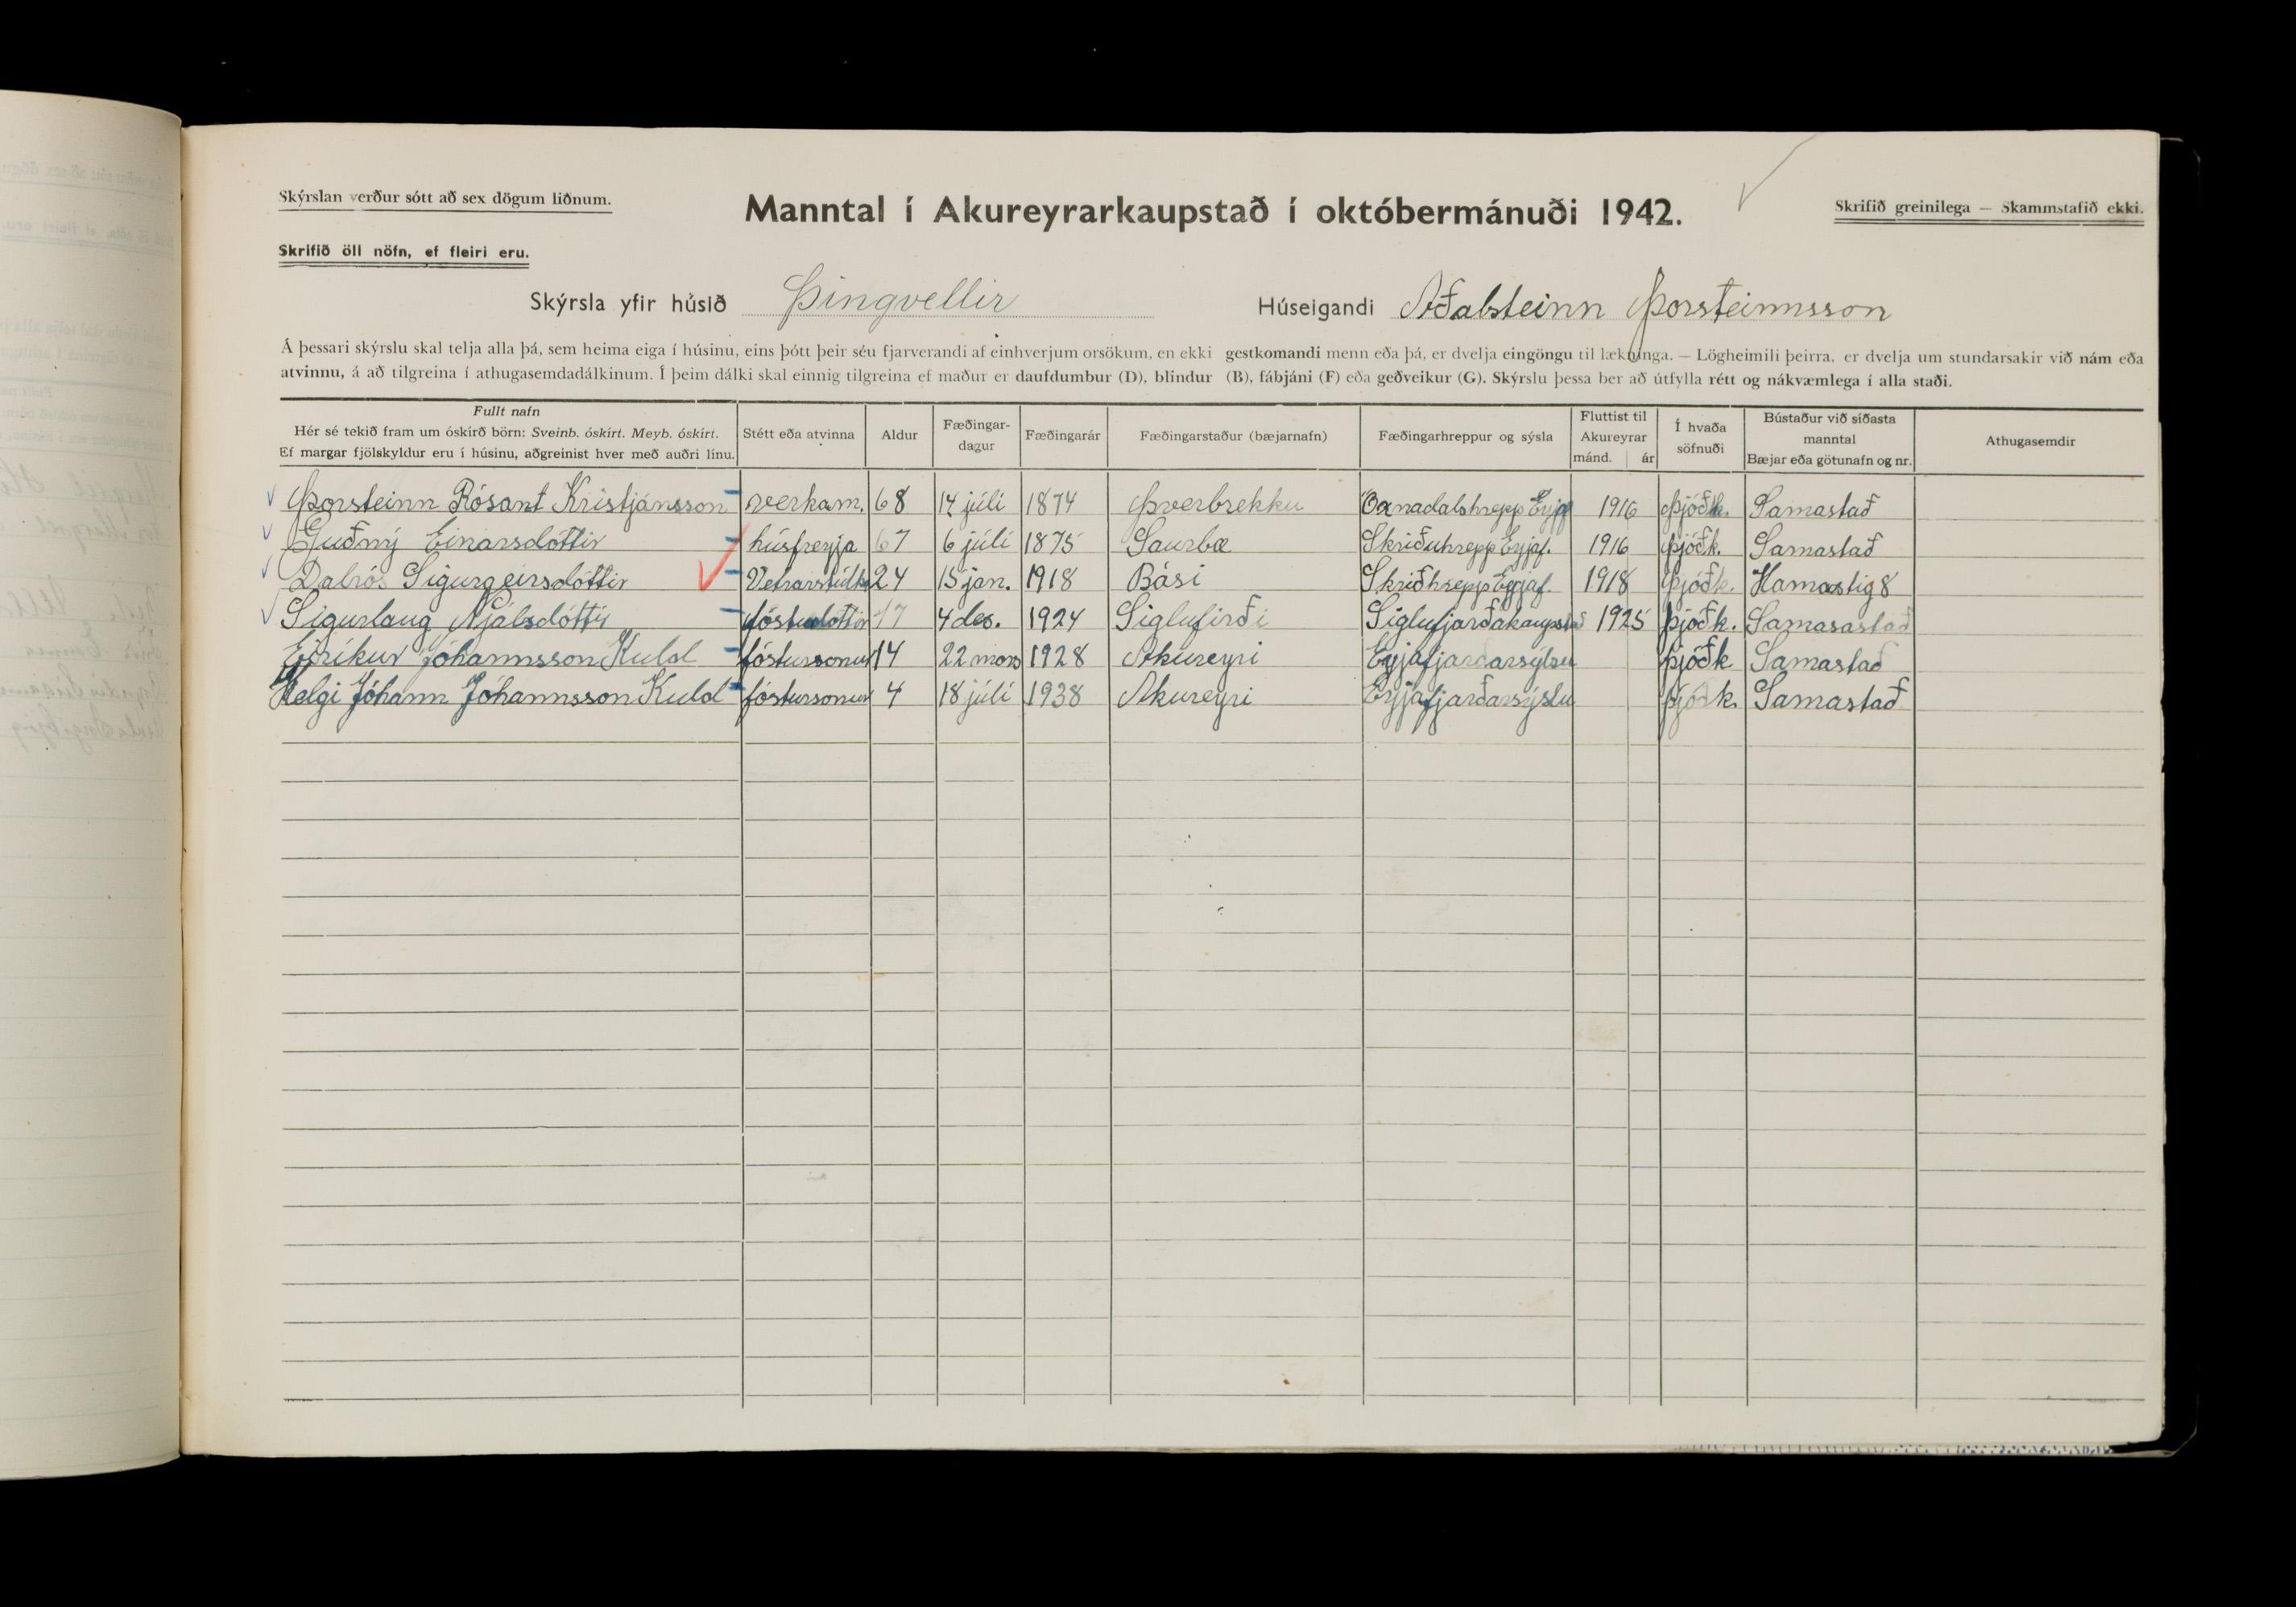 Skýrslan verður sótt að sex dögum liðnum.
Manntal í Akureyrarkaupstað í októbermánuði 1942.
Skrifið greinilega — Skammstafið ekki.
Skrifið öll nöfn, ef fleiri eru.
Skýrsla yfir húsið Þingvellir Húseigandi Aðalsteinn Þorsteinnsson
Á þessari skýrslu skal telja alla þá, sem heima eiga í húsinu, eins þótt þeir séu fjarverandi af einhverjum orsökum, en ekki gestkomandi menn eða þá, er dvelja eingöngu til lækninga. — Lögheimili þeirra, er dvelja um stundarsakir við nám eða
atvinnu, á að tilgreina í athugasemdadálkinum. Í þeim dálki skal einnig tilgreina ef maður er daufdumbur (D), blindur (B), fábjáni (F) eða geðveikur (G). Skýrslu þessa ber að útfylla rétt og nákvæmlega í alla staði.
Fullt nafn
Hér sé tekið fram um óskírð börn: Sveinb. óskírt. Meyb. óskírt.
Ef margar fjölskyldur eru í húsinu, aðgreinist hver með auðri línu.
Stétt eða atvinna
Aldur
Fæðingar-
dagur
Fæðingarár
Fæðingarstaður (bæjarnafn)
Fæðingarhreppur og sýsla
Fluttist til
Akureyrar
mánd. ár
Í hvaða
söfnuði
Bústaður við síðasta
manntal
Bæjar eða götunafn og nr.
Athugasemdir
Þorsteinn Rósant Kristjánsson verkam. 68 14 júlí 1874 Þverbrekku Öxnadalshrepp Eyjf 1916 Þjóðk. Samastað
Guðný Einarsdóttir húsfreyja 67 6 júlí 1875 Saurbæ Skriðuhrepp Eyjaf. 1916 Þjóðk. Samastað
Dalrós Sigurgeirsdóttir Vetrarstúlka 24 15 jan. 1918 Bási Skriðhrepp Eyjaf. 1918 Þjóðk. Hamarstig 8
Sigurlaug Njálsdóttir fósturdóttir 17 4 des. 1924 Siglufirði Siglufjarðakaupstað 1925 þjóðk. Samasastað
Eiríkur Jóhannsson Kuld fóstursonur 14 22 mars 1928 Akureyri Eyjafjarðarsýlsu þjóðk Samastað
Helgi Jóhann Jóhannsson Kuld fóstursonur 4 18 júlí 1938 Akureyri Eyjafjarðarsýslu þjóðk. Samastað